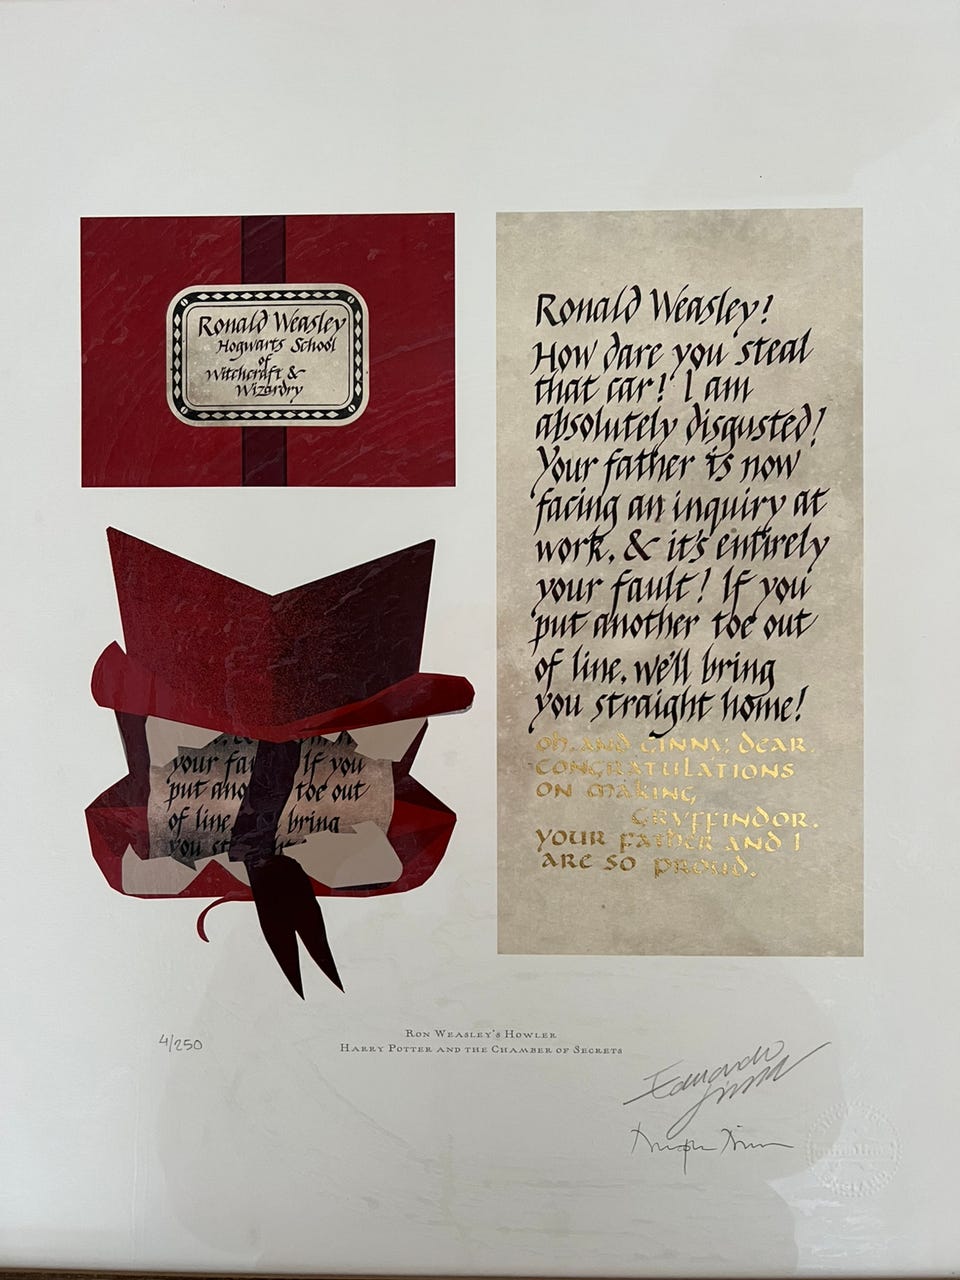 Ronald Weasley
Hogwarts School
of
Witchcraft &
Wizardry
Ronald Weasley!
How dare you steal
that car! I am
absolutely disgusted!
Your father is now
facing an inquiry at
work, & it's entirely
your fault! If you
put another toe out
of line, we'll bring
you straight home!
Oh, and Ginny, dear.
Congratulations
on making
Gryffindor.
Your father and I
are so proud.
your fau If you
put ano toe out
of line bring
you st
4/250
Ron Weasley's Howler
Harry Potter and the Chamber of Secrets
Eduardo